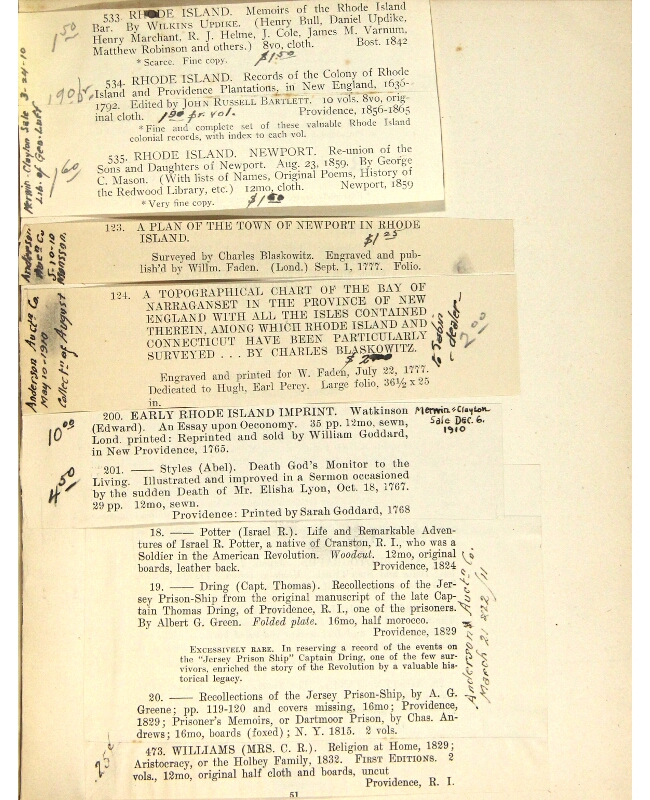 533. RHODE ISLAND. Memoirs of the Rhode Island
Bar. By WILKINS UPDIKE. (Henry Bull, Daniel Updike,
Henry Marchant, R. J. Helme, J. Cole, James M. Varnum,
Matthew Robinson and others.) 8vo, cloth. Bost. 1842
* Scarce. Fine copy. $1 50
1 50
534- RHODE ISLAND. Records of the Colony of Rhode
Island and Providence Plantations, in New England, 1636-
1792. Edited by JOHN RUSSELL BARTLETT. 10 vols. 8vo, orig-
inal cloth. 1 90 pr vol. Providence, 1856-1865
* Fine and complete set of these valuable Rhode Island
colonial records, with index to each vol.
1 90
535. RHODE ISLAND. NEWPORT. Re-union of the
Sons and Daughters of Newport. Aug. 23, 1859. By George
C. Mason. (With lists of Names, Original Poems, History of
the Redwood Library, etc.) 12mo, cloth. Newport, 1859
* Very fine copy. $1 60
1 60
Merwin-Clayton Sale 3-24-10
Lib. of Geo.
123. A PLAN OF THE TOWN OF NEWPORT IN RHODE
ISLAND. $1 25
Surveyed by Charles Blaskowitz. Engraved and pub-
lish'd by Willm. Faden. (Lond.) Sept. 1, 1777. Folio.
Anderson
Auctn Co
5-10-10
124. A TOPOGRAPHICAL CHART OF THE BAY OF
NARRAGANSET IN THE PROVINCE OF NEW
ENGLAND WITH ALL THE ISLES CONTAINED
THEREIN, AMONG WHICH RHODE ISLAND AND
CONNECTICUT HAVE BEEN PARTICULARLY
SURVEYED . . . BY CHARLES BLASKOWITZ.
$2
Engraved and printed for W. Faden, July 22, 1777.
Dedicated to Hugh, Earl Percy. Large folio, 36½ x 25
in.
Anderson Auctn Co
May 10-1910
Collectn of August
to Sabin
- dealer -
2 00
200. EARLY RHODE ISLAND IMPRINT. Watkinson
(Edward). An Essay upon Oeconomy. 35 pp. 12mo, sewn,
Lond. printed: Reprinted and sold by William Goddard,
in New Providence, 1765.
10 00
Merwin-Clayton
Sale Dec. 6.
1910
201. —— Styles (Abel). Death God's Monitor to the
Living. Illustrated and improved in a Sermon occasioned
by the sudden Death of Mr. Elisha Lyon, Oct. 18, 1767.
29 pp. 12mo, sewn.
Providence: Printed by Sarah Goddard, 1768
4 50
18. —— Potter (Israel R.). Life and Remarkable Adven-
tures of Israel R. Potter, a native of Cranston, R. I., who was a
Soldier in the American Revolution. Woodcut. 12mo, original
boards, leather back. Providence, 1824
19. —— Dring (Capt. Thomas). Recollections of the Jer-
sey Prison-Ship from the original manuscript of the late Cap-
tain Thomas Dring, of Providence, R. I., one of the prisoners.
By Albert G. Green. Folded plate. 16mo, half morocco.
Providence, 1829
EXCESSIVELY RARE. In reserving a record of the events on
the "Jersey Prison Ship" Captain Dring, one of the few sur-
vivors, enriched the story of the Revolution by a valuable his-
torical legacy.
20. —— Recollections of the Jersey Prison-Ship, by A. G.
Greene; pp. 119-120 and covers missing, 16mo; Providence,
1829; Prisoner's Memoirs, or Dartmoor Prison, by Chas. An-
drews; 16mo, boards (foxed); N. Y. 1815. 2 vols.
Anderson Auctn Co.
March 21 & 22 / 11
473. WILLIAMS (MRS. C. R.). Religion at Home, 1829;
Aristocracy, or the Holbey Family, 1832. FIRST EDITIONS. 2
vols., 12mo, original half cloth and boards, uncut
Providence, R. I.
51